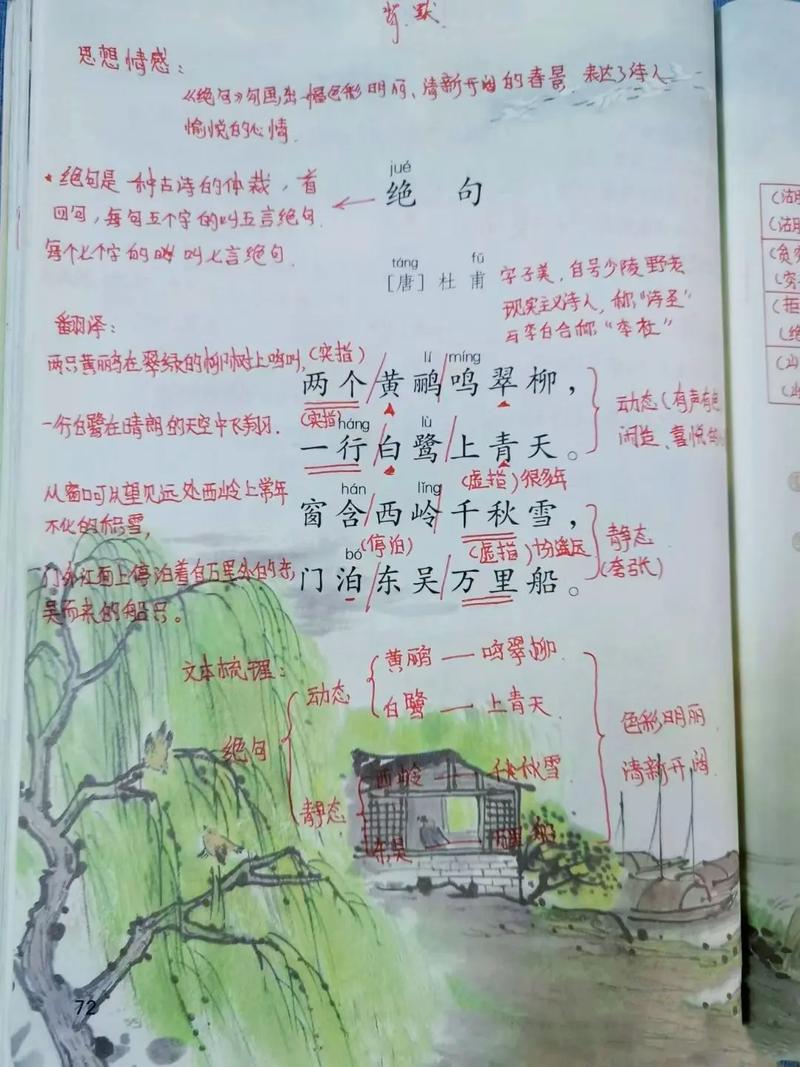 背 默
思想情感：
《绝句》勾画出一幅色彩明丽、清新开阔的春景，表达了诗人
愉悦的心情.
绝句是一种古诗的体裁，有
四句，每句五个字的叫五言绝句.
每个七个字的叫七言绝句.
jué
绝 句
táng fǔ
［唐］杜 甫
字子美，自号少陵野老
现实主义诗人，称"诗圣"
与李白合称"李杜"
翻译：
两只黄鹂在翠绿的柳树上鸣叫,
(实指)
lí míng
两个/黄鹂/鸣翠柳，
一行白鹭在晴朗的天空中飞翔.
(实指)
háng lù
一行/白鹭/上青天。
动态(有声有色
闲适、喜悦
从窗口可以望见远处西岭上常年
不化的积雪,
(虚指)很多年
hán lǐng
窗含/西岭/千秋雪，
门外江面上停泊着自万里外的东
吴而来的船只。
(停泊)
(虚指)
bó
门泊/东吴/万里船。
静态
(夸张)
文本梳理：
绝句
动态
黄鹂 — 鸣翠柳
白鹭 — 上青天
静态
西岭 — 千秋雪
东吴 — 万里船
色彩明丽
清新开阔
72